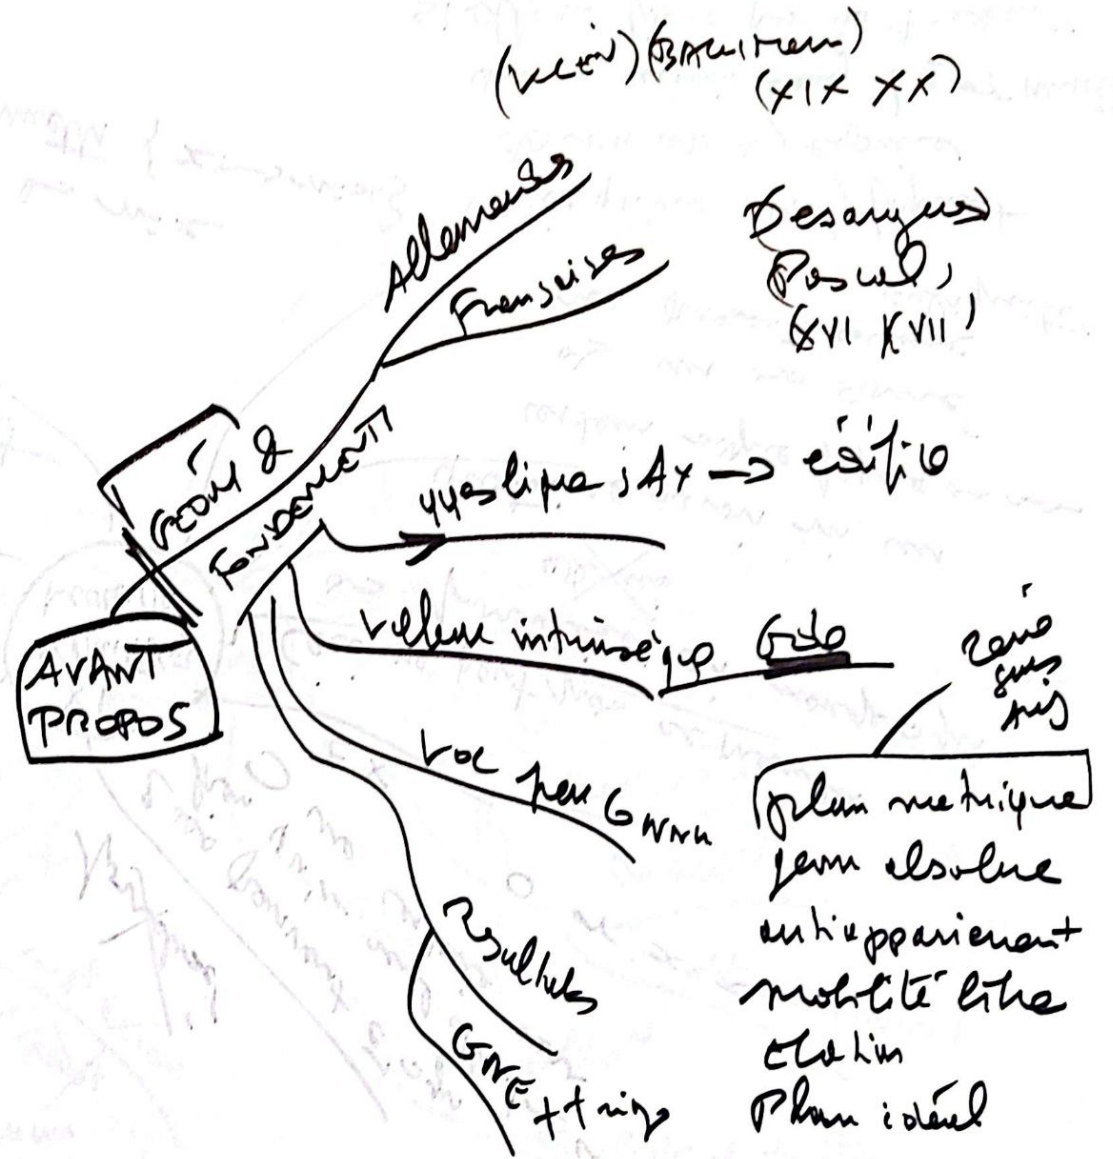 (KLEIN) (BACHMANN)
(XIX XX)
Allemandes
Françaises
Desargues
Pascal,
XVI XVII
GÉOM &
FONDEMENTS
AVANT
PROPOS
qques ; Ax → édifice
valeur intrinsèque Géo
voc peu
plan métrique
géom absolue
antiappariement
mobilité libre
Plan idéal
Résultats
GNE + trigo